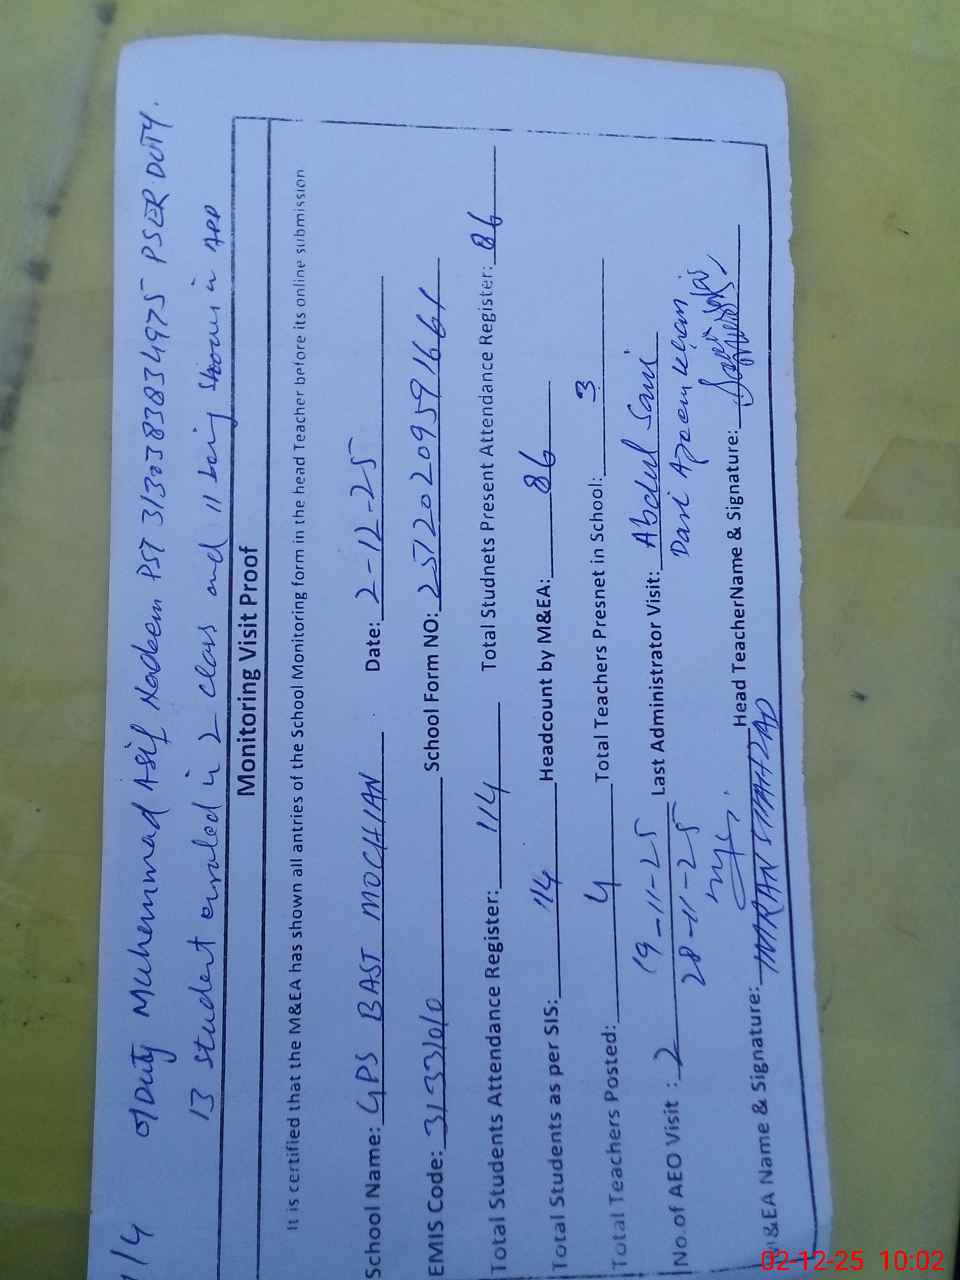 1/4 o/Duty Muhemmad Asif Nadeem PST 3130383834975 PSER DUTY.
13 student enroled in 2 class and 11 being shown in APP
Monitoring Visit Proof
It is certified that the M&EA has shown all antries of the School Monitoring form in the head Teacher before its online submission
School Name: GPS BAST MOCHIAN Date: 2-12-25
EMIS Code: 31331010 School Form NO: 25120209591661
Total Students Attendance Register: 114 Total Studnets Present Attendance Register: 86
Total Students as per SIS: 114 Headcount by M&EA: 86
Total Teachers Posted: 4 Total Teachers Presnet in School: 3
No. of AEO Visit : 2 19-11-25 Last Administrator Visit: Abdul Sami
28-11-25
M&EA Name & Signature: IMRAN SHAHZAD Head TeacherName & Signature:
02-12-25 10:02